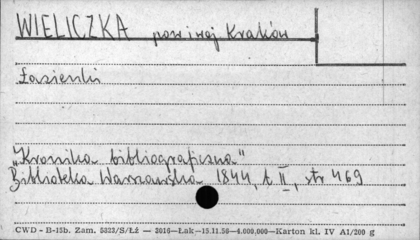 WIELICZKA pow i woj Kraków
Łazienki
„Kronika bibliograficzna"
Biblioteka Warszawska 1844, t II, str 469
CWD - B-15b. Zam. 5323/S/Łż — 3016—Łak—15.11.50—4.000.000—Karton kl. IV A1/200 g